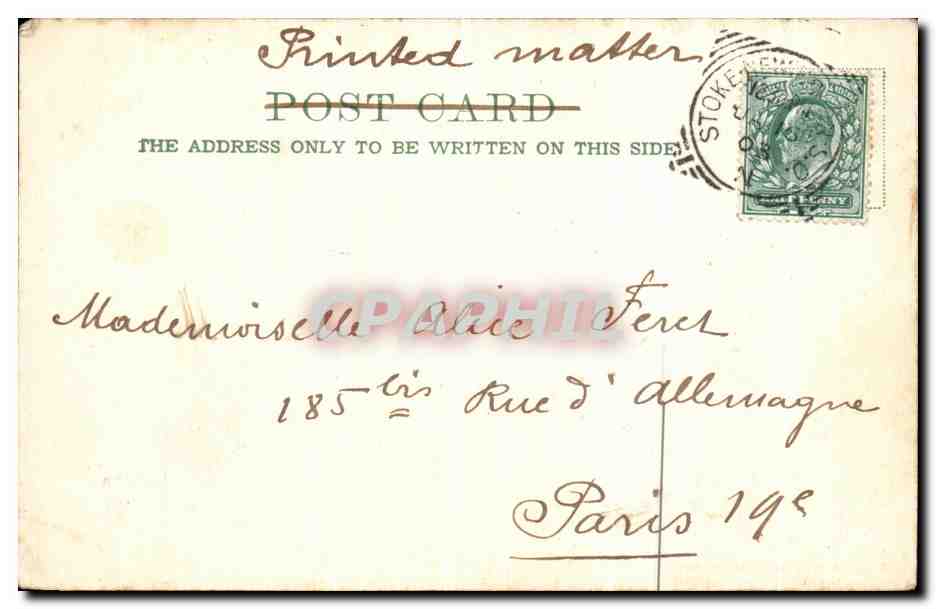 Printed matter
POST CARD
THE ADDRESS ONLY TO BE WRITTEN ON THIS SIDE
STOKE NEW
HALFPENNY
CPAPHIL
Mademoiselle Alice Feret
185 bis Rue d'Allemagne
Paris 19e